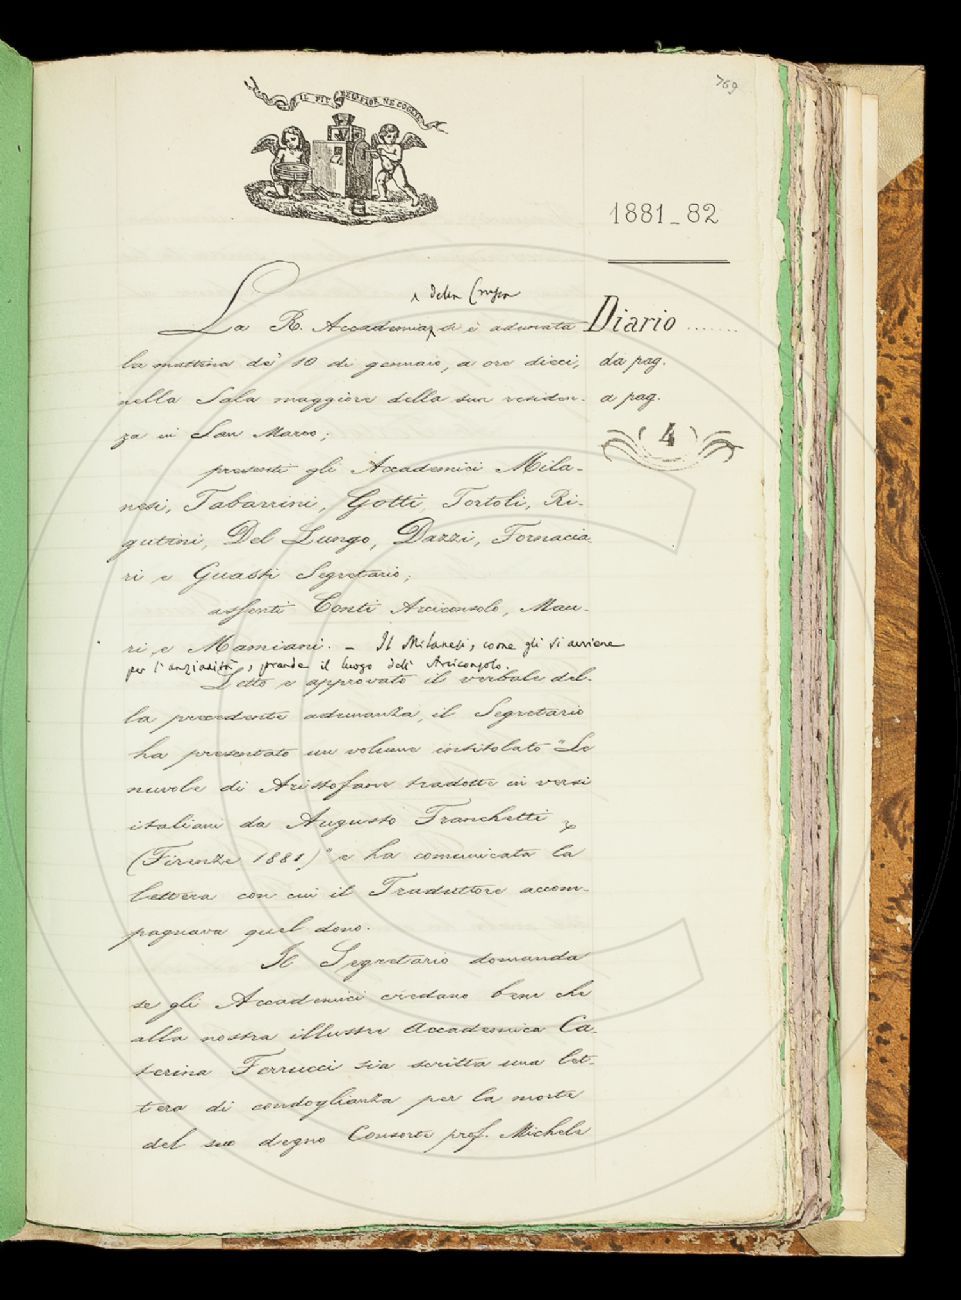 769
IL PIÙ BEL FIOR NE COGLIE
1881_82
della Crusca
La R. Accademia si è adunata
la mattina de' 10 di gennaio, a ore dieci,
nella Sala maggiore della sua residen-
za in San Marco;
presenti gli Accademici Mila-
nesi, Tabarrini, Gotti, Tortoli, Ri-
gutini, Del Lungo, Dazzi, Fornacia-
ri, e Guasti Segretario;
assenti Conti Arciconsolo, Mau-
ri, e Mamiani. – Il Milanesi, come gli si avviene
per l'anzianità, prende il luogo dell' Arciconsolo.
Letto e approvato il verbale del-
la precedente adunanza, il Segretario
ha presentato un volume intitolato "Le
nuvole di Aristofane tradotte in versi
italiani da Augusto Franchetti
(Firenze 1881)" e ha comunicata la
lettera con cui il Traduttore accom-
pagnava quel dono.
Il Segretario domanda
se gli Accademici credano bene che
alla nostra illustre Accademica Ca-
terina Ferrucci sia scritta una let-
tera di condoglianza per la morte
del suo degno Consorte prof. Michele
Diario .......
da pag.
a pag.
4